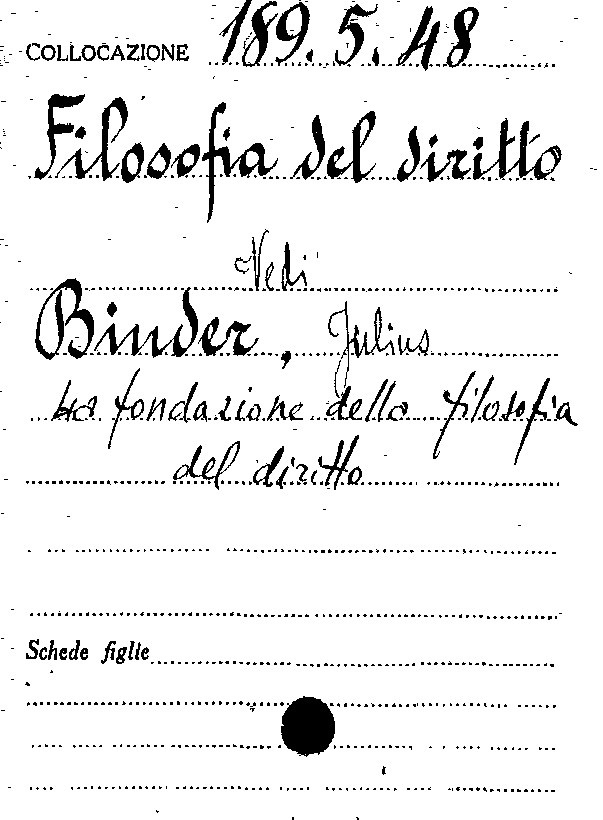 COLLOCAZIONE 189.5.48
Filosofia del diritto
Vedi
Binder, Julius
La fondazione della filosofia
del diritto
Schede figlie